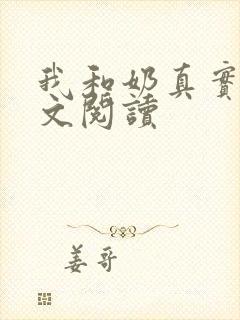 我和奶真實
文閱讀
姜哥